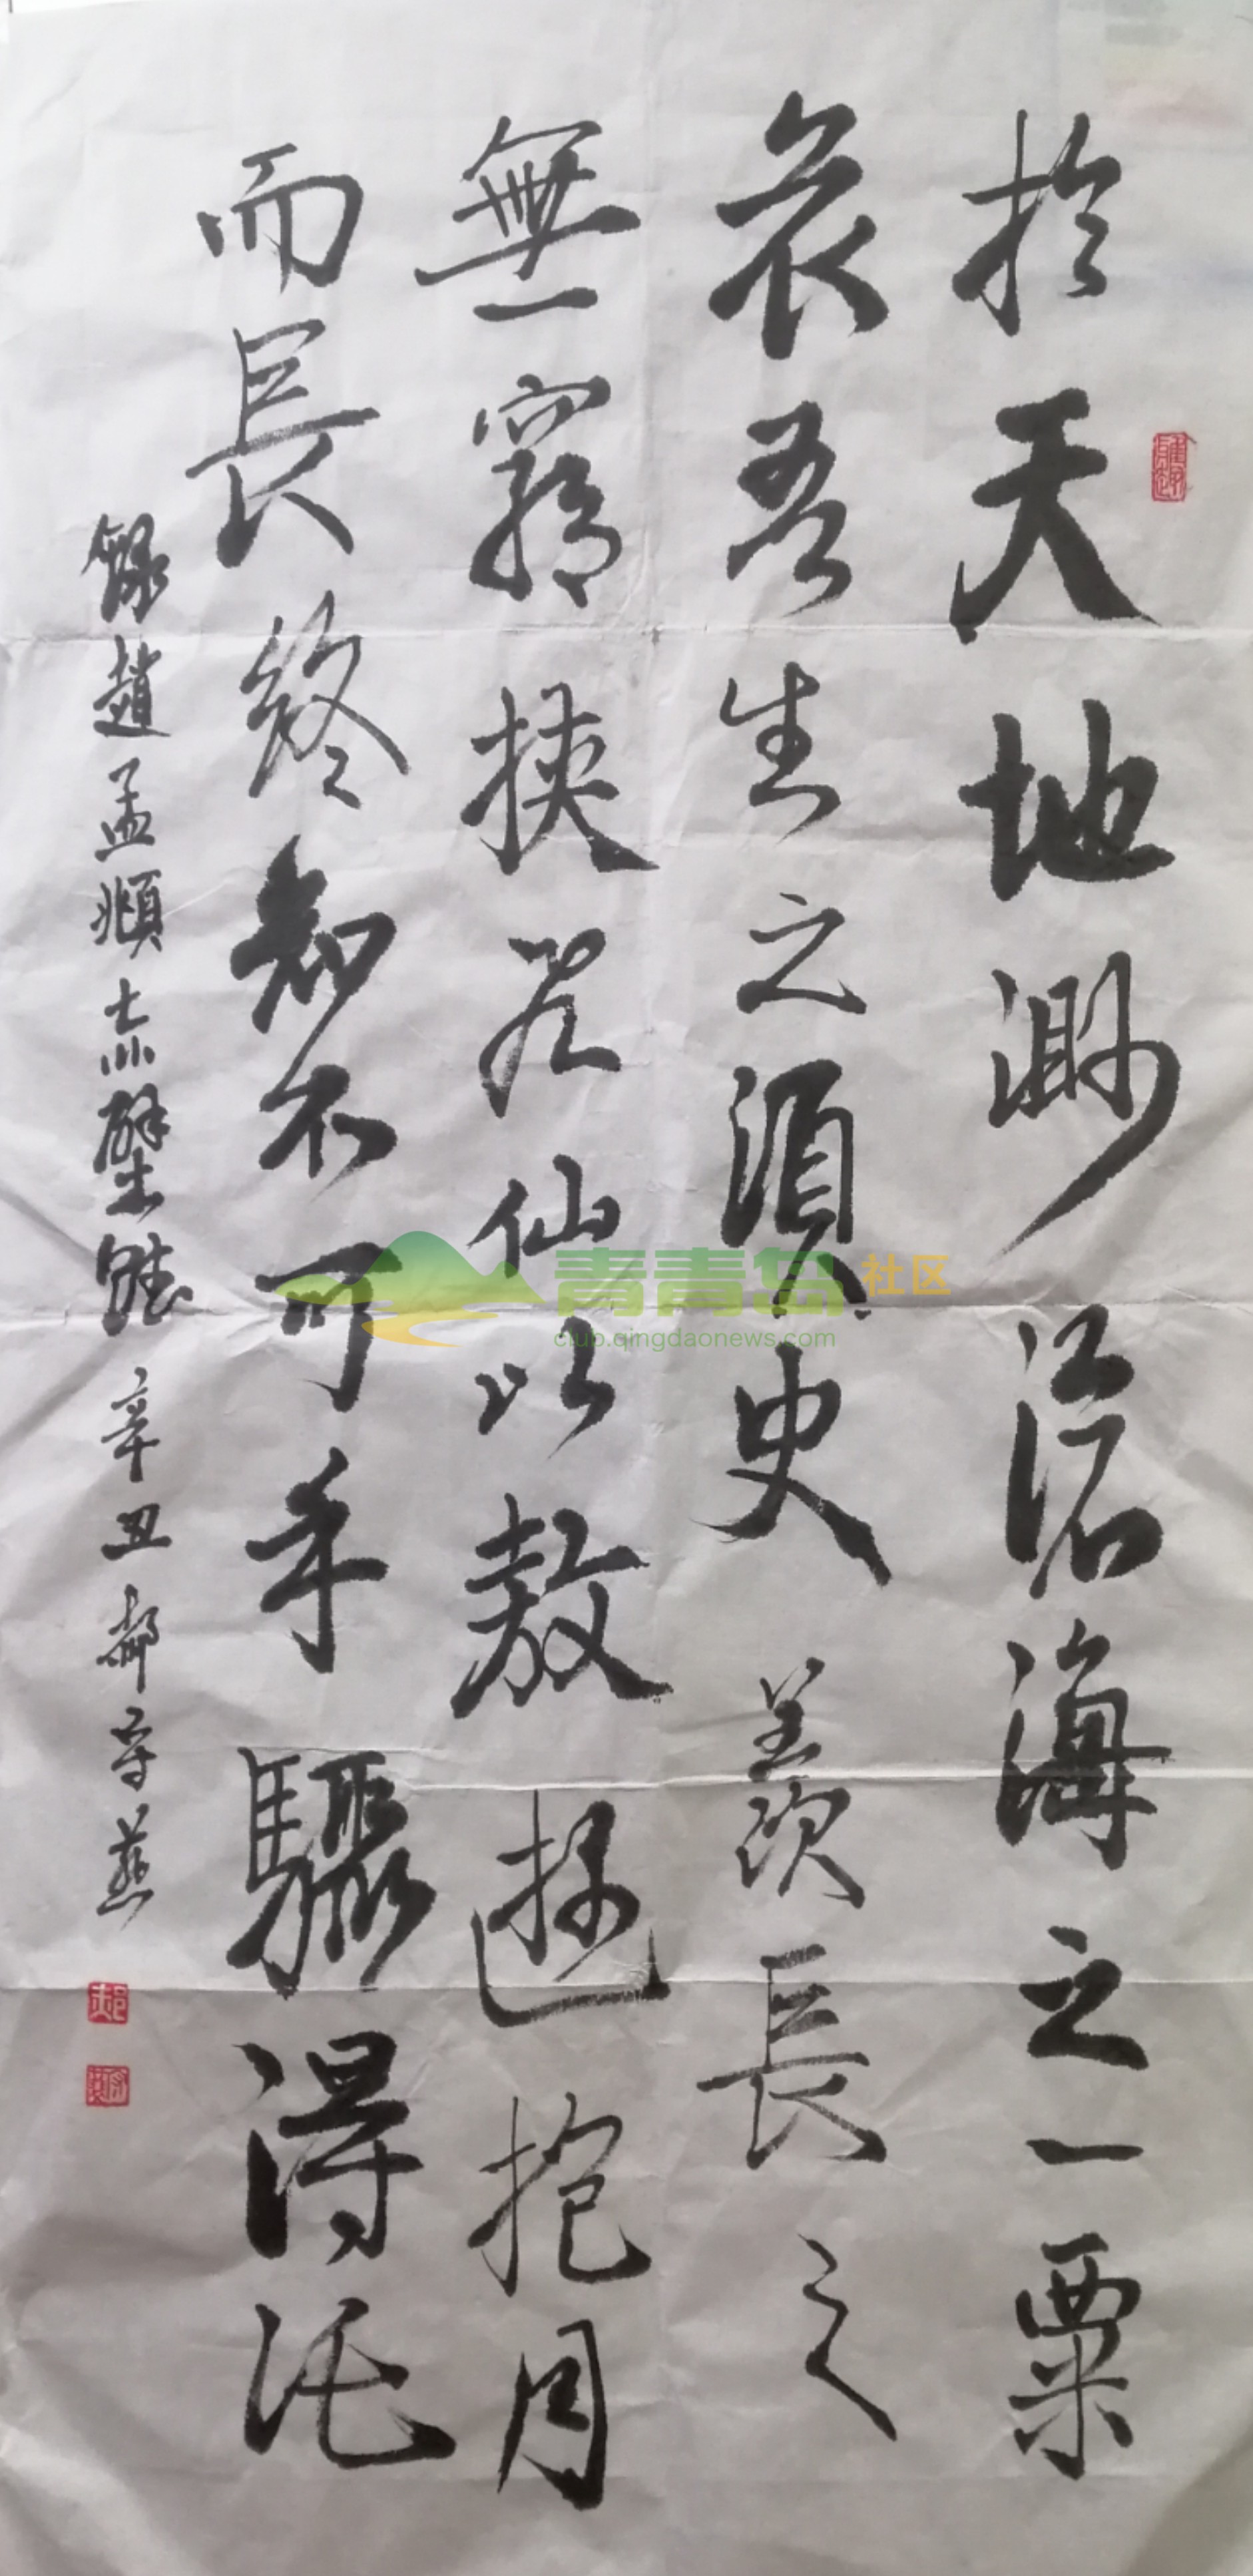 於天地渺滄海之一粟
哀吾生之須臾羨長之
無窮挾飛仙以敖遊抱月
而長終知不可乎驟得託
錄趙孟頫赤壁賦 辛丑 郝守
青青岛社区
club.qingdaonews.com